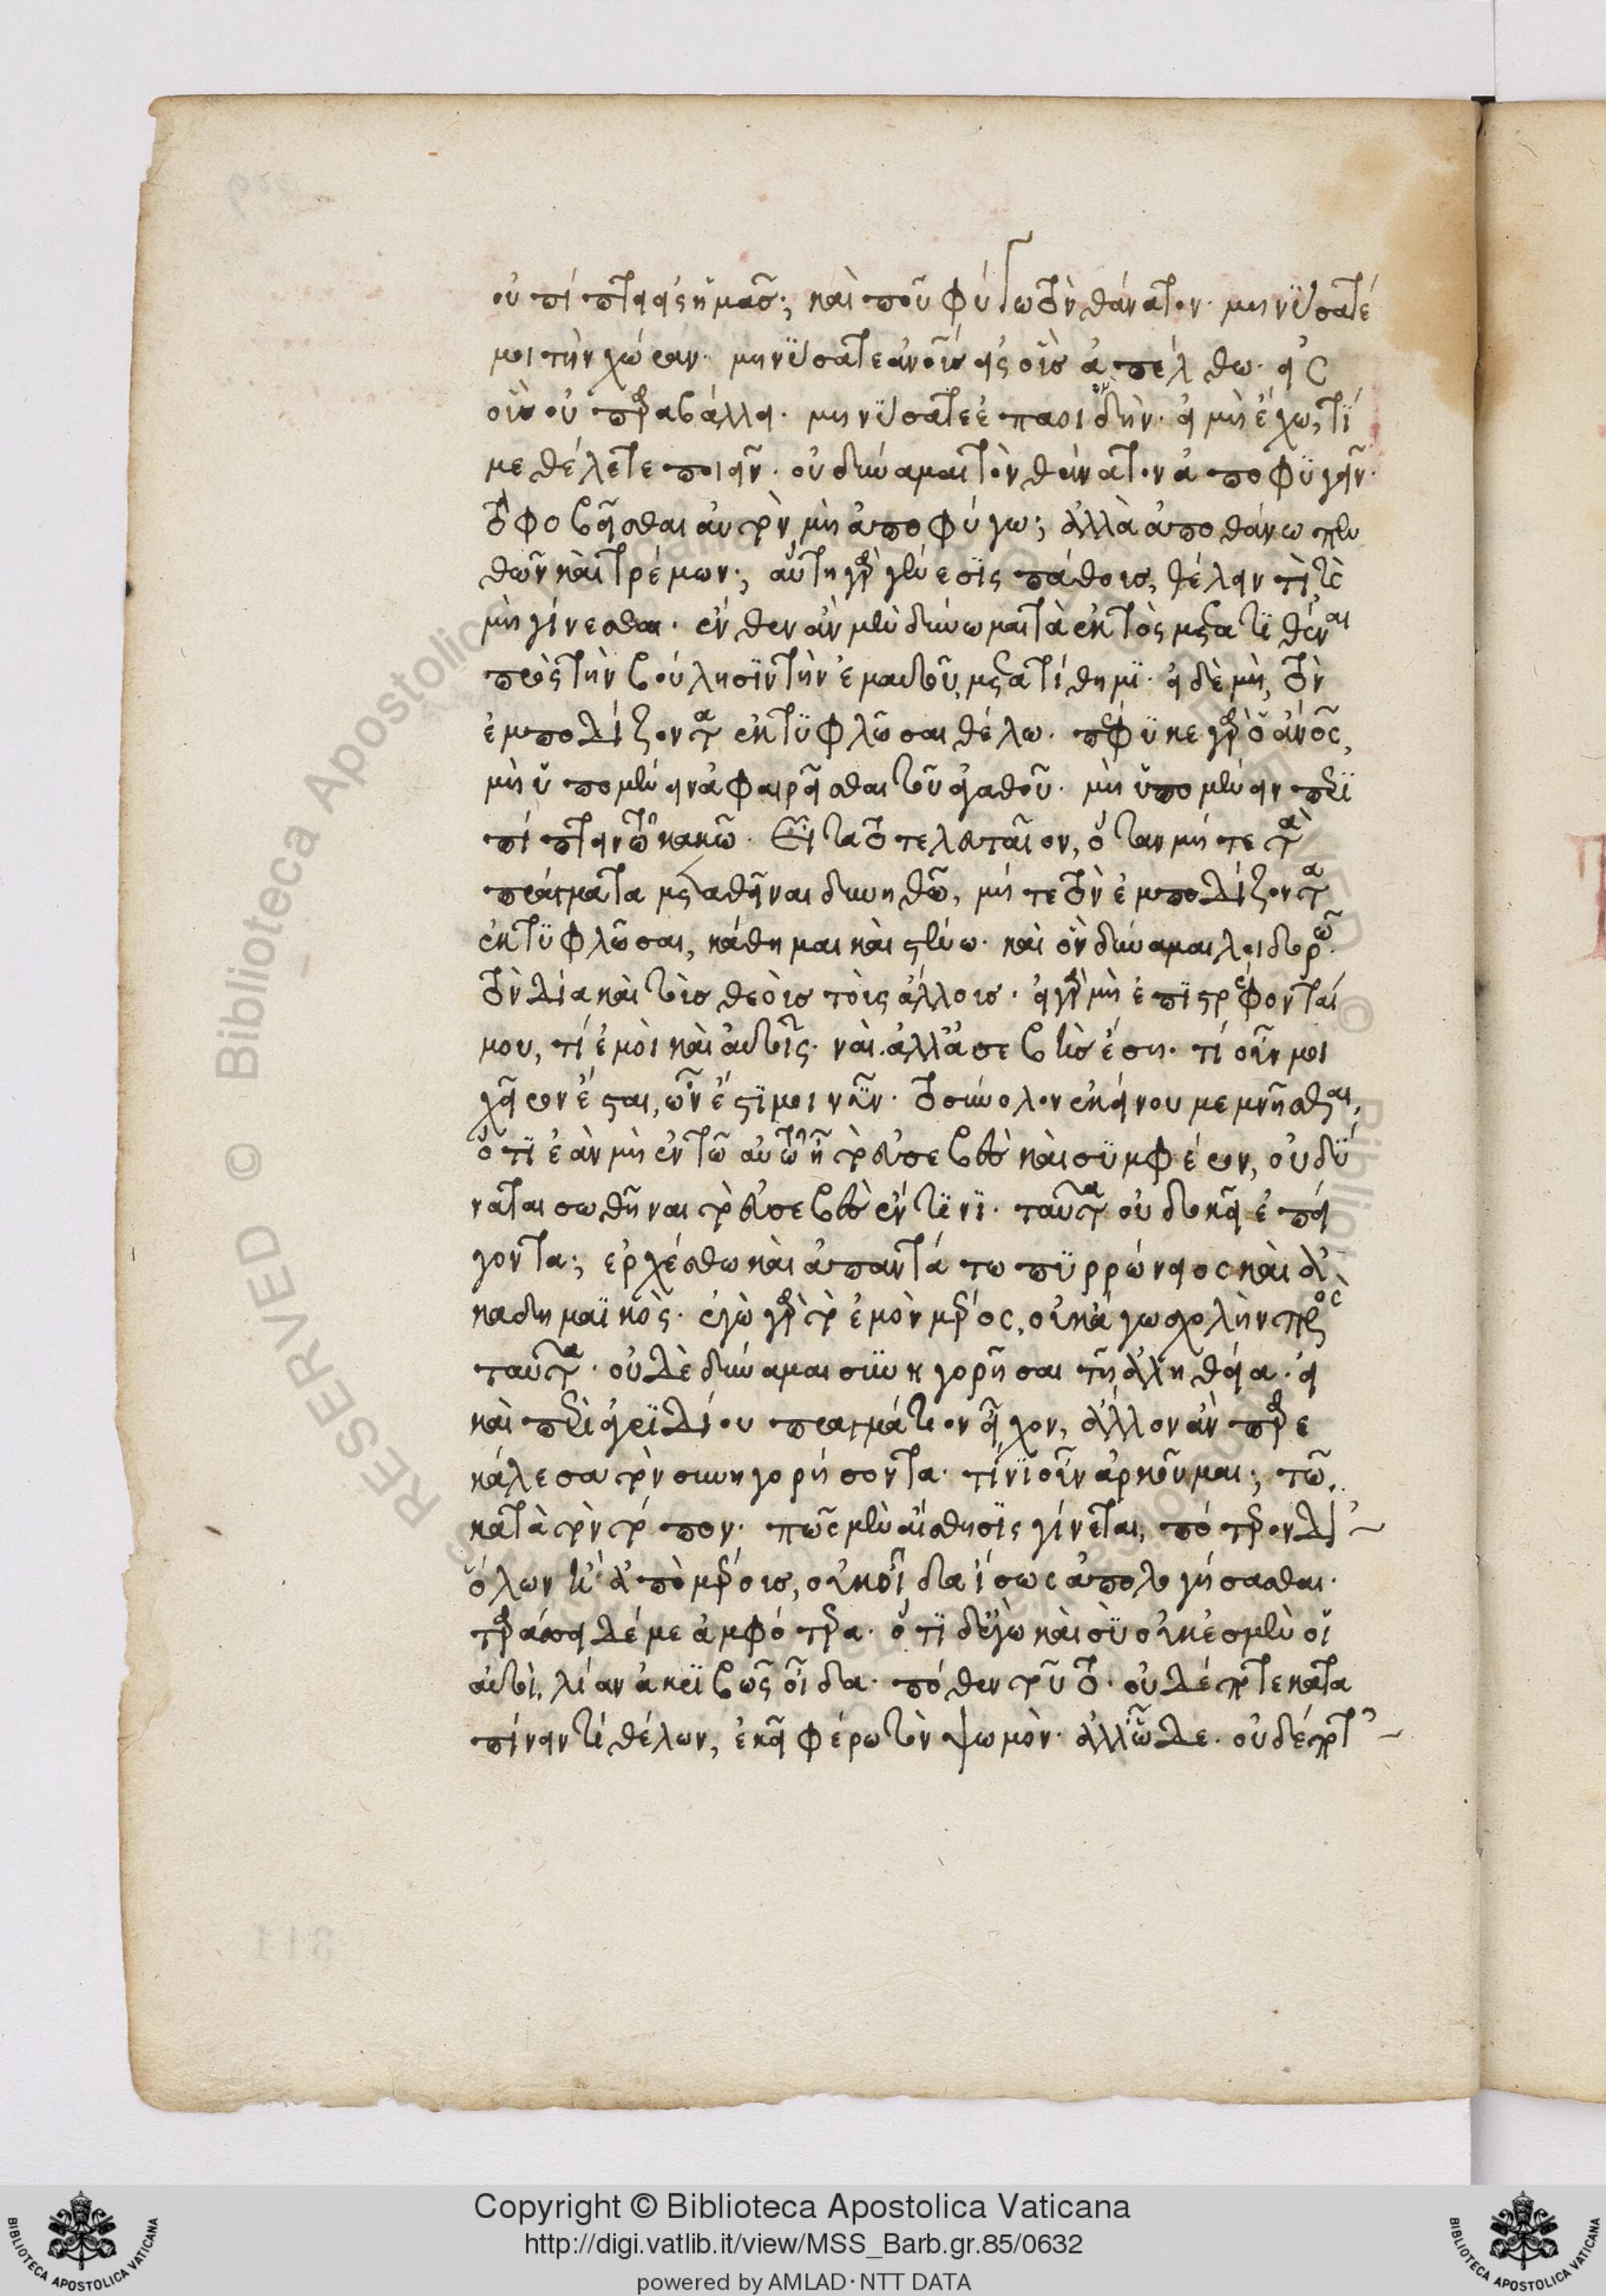 οὐ πίπτει εἰς ἡμᾶς; καὶ ποῦ φύγω τὸν θάνατον· μηνύσατέ
μοι τὴν χώραν· μηνύσατε ἀνοῖς εἰς οἷς ἀπέλθω· εἰς
οἷς οὐ παραβάλλει· μηνύσατε ἐπαοιδὴν· εἰ μὴ ἔχω, τί
με θέλετε ποιεῖν· οὐ δύναμαι τὸν θάνατον ἀποφυγεῖν·
τὸ φοβεῖσθαι αὐτὸν μὴ ἀποφύγω; ἀλλὰ ἀποθάνω πεν
θῶν καὶ τρέμων; αὕτη γὰρ γένεσις πάθοις, θέλειν τὶ καὶ
μὴ γίνεσθαι· ἔνθεν ἂν μὲν δύνωμαι τὰ ἐκτὸς μετατιθέναι
πρὸς τὴν βούλησιν τὴν ἐμαυτοῦ, μετατίθημι· εἰ δὲ μὴ, τὸν
ἐμποδίζοντα ἐκτυφλῶσαι θέλω· πέφυκε γὰρ ὁ ἄνος,
μὴ ὑπομένειν ἀφαιρεῖσθαι τοῦ ἀγαθοῦ· μὴ ὑπομένειν περι
πίπτειν τῶ κακῶ· Εἶτα τὸ τελευταῖον, ὅταν μήτε τὰ
πράγματα μεταθῆναι δυνηθῶ, μήτε τὸν ἐμποδίζοντα
ἐκτυφλῶσαι, κάθημαι καὶ στένω· καὶ ὃν δύναμαι λοιδορῶ·
τὸν Δία καὶ τοὶς θεὸις τὸις ἄλλοις· εἰ γὰρ μὴ ἐπιστρέφονταί
μου, τί ἐμὸι καὶ ἀυτοῖς· νὰι· ἀλλ' ἀσεβὴς ἔση· τί οὖν μοι
χεῖρον ἔσται, ὧν ἔστι μοι νῦν· τὸ σύνολον ἐκείνου μεμνῆσθαι,
ὅτι ἐὰν μὴ ἐν τῶ αὐτῶ ἦ τὸ εὐσεβὲς καὶ συμφέρον, οὐ δύ
ναται σωθῆναι τὸ εὐσεβὲς ἔν τινι· ταῦτα οὐ δοκεῖ ἐπεί
γοντα; ἐρχέσθω καὶ ἀπαντάτω πυρρώνειος καὶ ἀ
καδημαϊκὸς· ἐγὼ γὰρ τὸ ἐμὸν μέρος, οὐκ ἄγω σχολὴν πρὸς
ταῦτα· οὐδὲ δύναμαι συνηγορῆσαι τῆ ἀληθεία· εἰ
καὶ περὶ ἀγριδίου πραγμάτιον εἶχον, ἄλλον ἂν παρε
κάλεσα τὸν συνηγορήσοντα· τίνι οὖν ἀρκοῦμαι; τῶ
κατὰ τὸν τόπον· πῶς μὲν αἴσθησις γίνεται, πότερον δι'
ὅλων ἢ ἀπὸ μέροις, οὐκ οἶδα ἴσως ἀπολογήσασθαι·
ταράσσει δέ με ἀμφότερα· ὅτι δ' ἐγὼ καὶ σὺ οὐκ ἐσμὲν οἱ
ἀυτοὶ, λίαν ἀκριβῶς οἶδα· πόθεν τοῦτο· οὐδέποτε κατα
πίνειν τὶ θέλων, ἐκεῖ φέρω τὸν ψωμὸν· ἀλλ' ὧδε· οὐδέποτ'
Copyright © Biblioteca Apostolica Vaticana
http://digi.vatlib.it/view/MSS_Barb.gr.85/0632
powered by AMLAD·NTT DATA